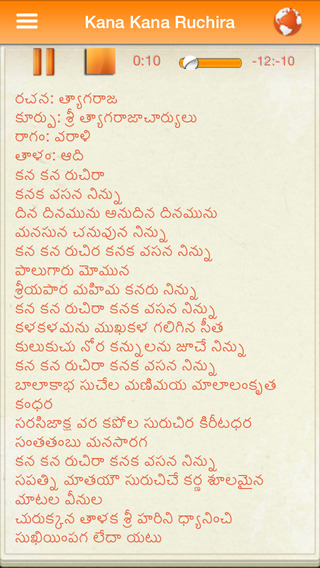 Kana Kana Ruchira
0:10
-12:-10
రచన: త్యాగరాజ
కూర్పు: శ్రీ త్యాగరాజాచార్యులు
రాగం: వరాళి
తాళం: ఆది
కన కన రుచిరా
కనక వసన నిన్ను
దిన దినమును అనుదిన దినమును
మనసున చనువున నిన్ను
కన కన రుచిర కనక వసన నిన్ను
పాలుగారు మోమున
శ్రీయపార మహిమ కనరు నిన్ను
కన కన రుచిరా కనక వసన నిన్ను
కళకళమను ముఖకళ గలిగిన సీత
కులుకుచు నోర కన్నులను జూచే నిన్ను
కన కన రుచిరా కనక వసన నిన్ను
బాలాకాభ సుచేల మణిమయ మాలాలంకృత
కంధర
సరసిజాక్ష వర కపోల సురుచిర కిరీటధర
సంతతంబు మనసారగ
కన కన రుచిరా కనక వసన నిన్ను
సపత్ని మాతయౌ సురుచిచే కర్ణ శూలమైన
మాటల వీనుల
చురుక్కన తాళక శ్రీ హరిని ధ్యానించి
సుఖియింపగ లేదా యటు